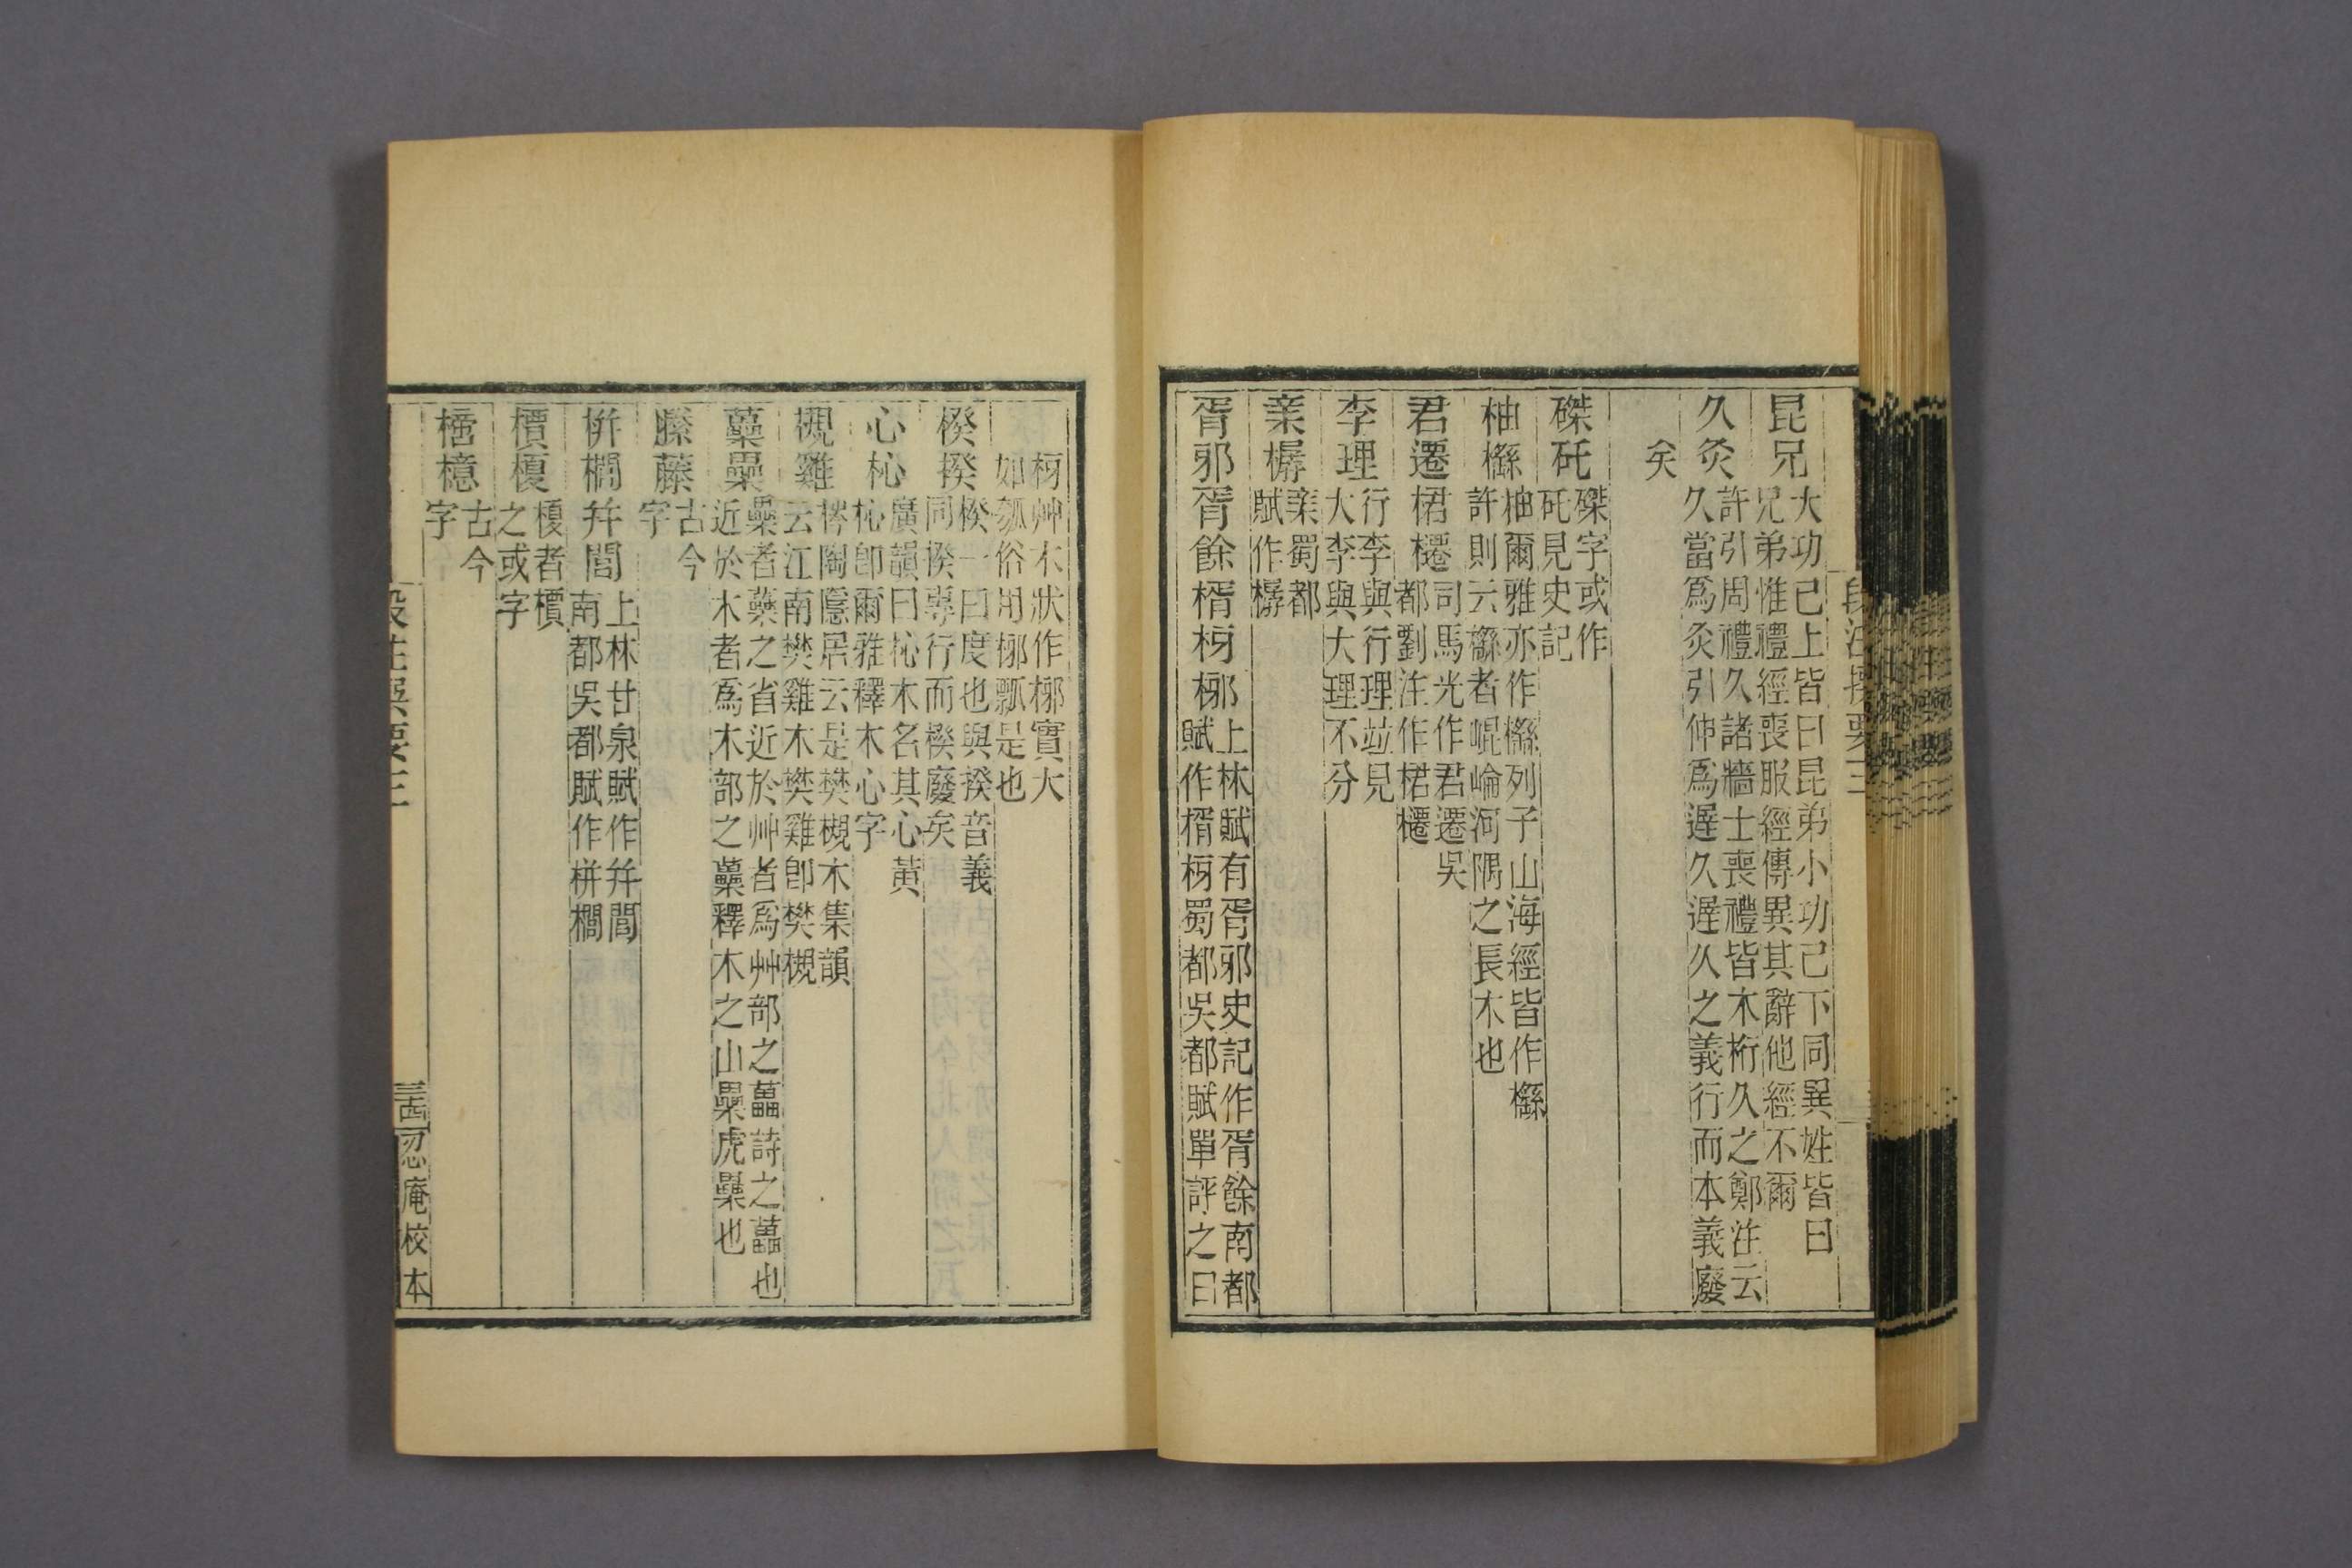 段注撰要三
昆兄
大功已上皆曰昆弟小功已下同異姓皆曰
兄弟惟禮經喪服經傳異其辭他經不爾
久灸
許引周禮久諸牆士喪禮皆木桁久之鄭注云
久當爲灸引伸爲遲久遲久之義行而本義廢
矣
磔矺
磔字或作
矺見史記
柚櫾
柚爾雅亦作櫾列子山海經皆作櫾
許則云櫾者崐崘河隅之長木也
君遷桾櫏
司馬光作君遷吳
都劉注作桾櫏
李理
行李與行理竝見
大李與大理不分
亲樼
亲蜀都
賦作樼
胥邪胥餘楈枒梛
上林賦有胥邪史記作胥餘南都
賦作楈枒蜀都吳都賦單評之曰
枒艸木狀作梛實大
如瓠俗用梛瓢是也
楑揆
楑一曰度也與揆音義
同揆專行而楑廢矣
心杺
廣韻曰杺木名其心黃
杺卽爾雅釋木心字
槻雞
梣陶隱居云是樊槻木集韻
云江南樊雞木樊雞卽樊槻
虆櫐
櫐者虆之省近於艸者爲艸部之藟詩之藟也
近於木者爲木部之虆釋木之山櫐虎櫐也
縢藤
古今
字
栟櫚幷閭
上林甘泉賦作幷閭
南都吳都賦作栟櫚
檟榎
榎者檟
之或字
㮒檍
古今
字
段注撰要三
忍庵校本